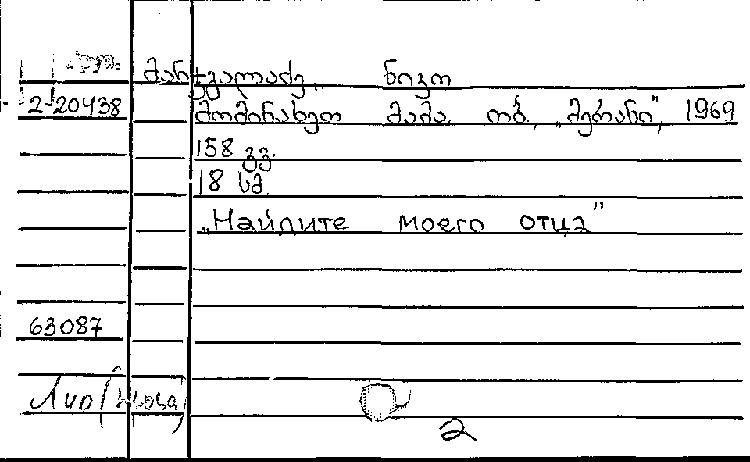 მარტვალაძე, ნიკო
2-20438 მომინახეთ მამა. თბ., „მერანი“, 1969
158 გვ.
18 სმ.
„Найдите моего отца”
63087
2